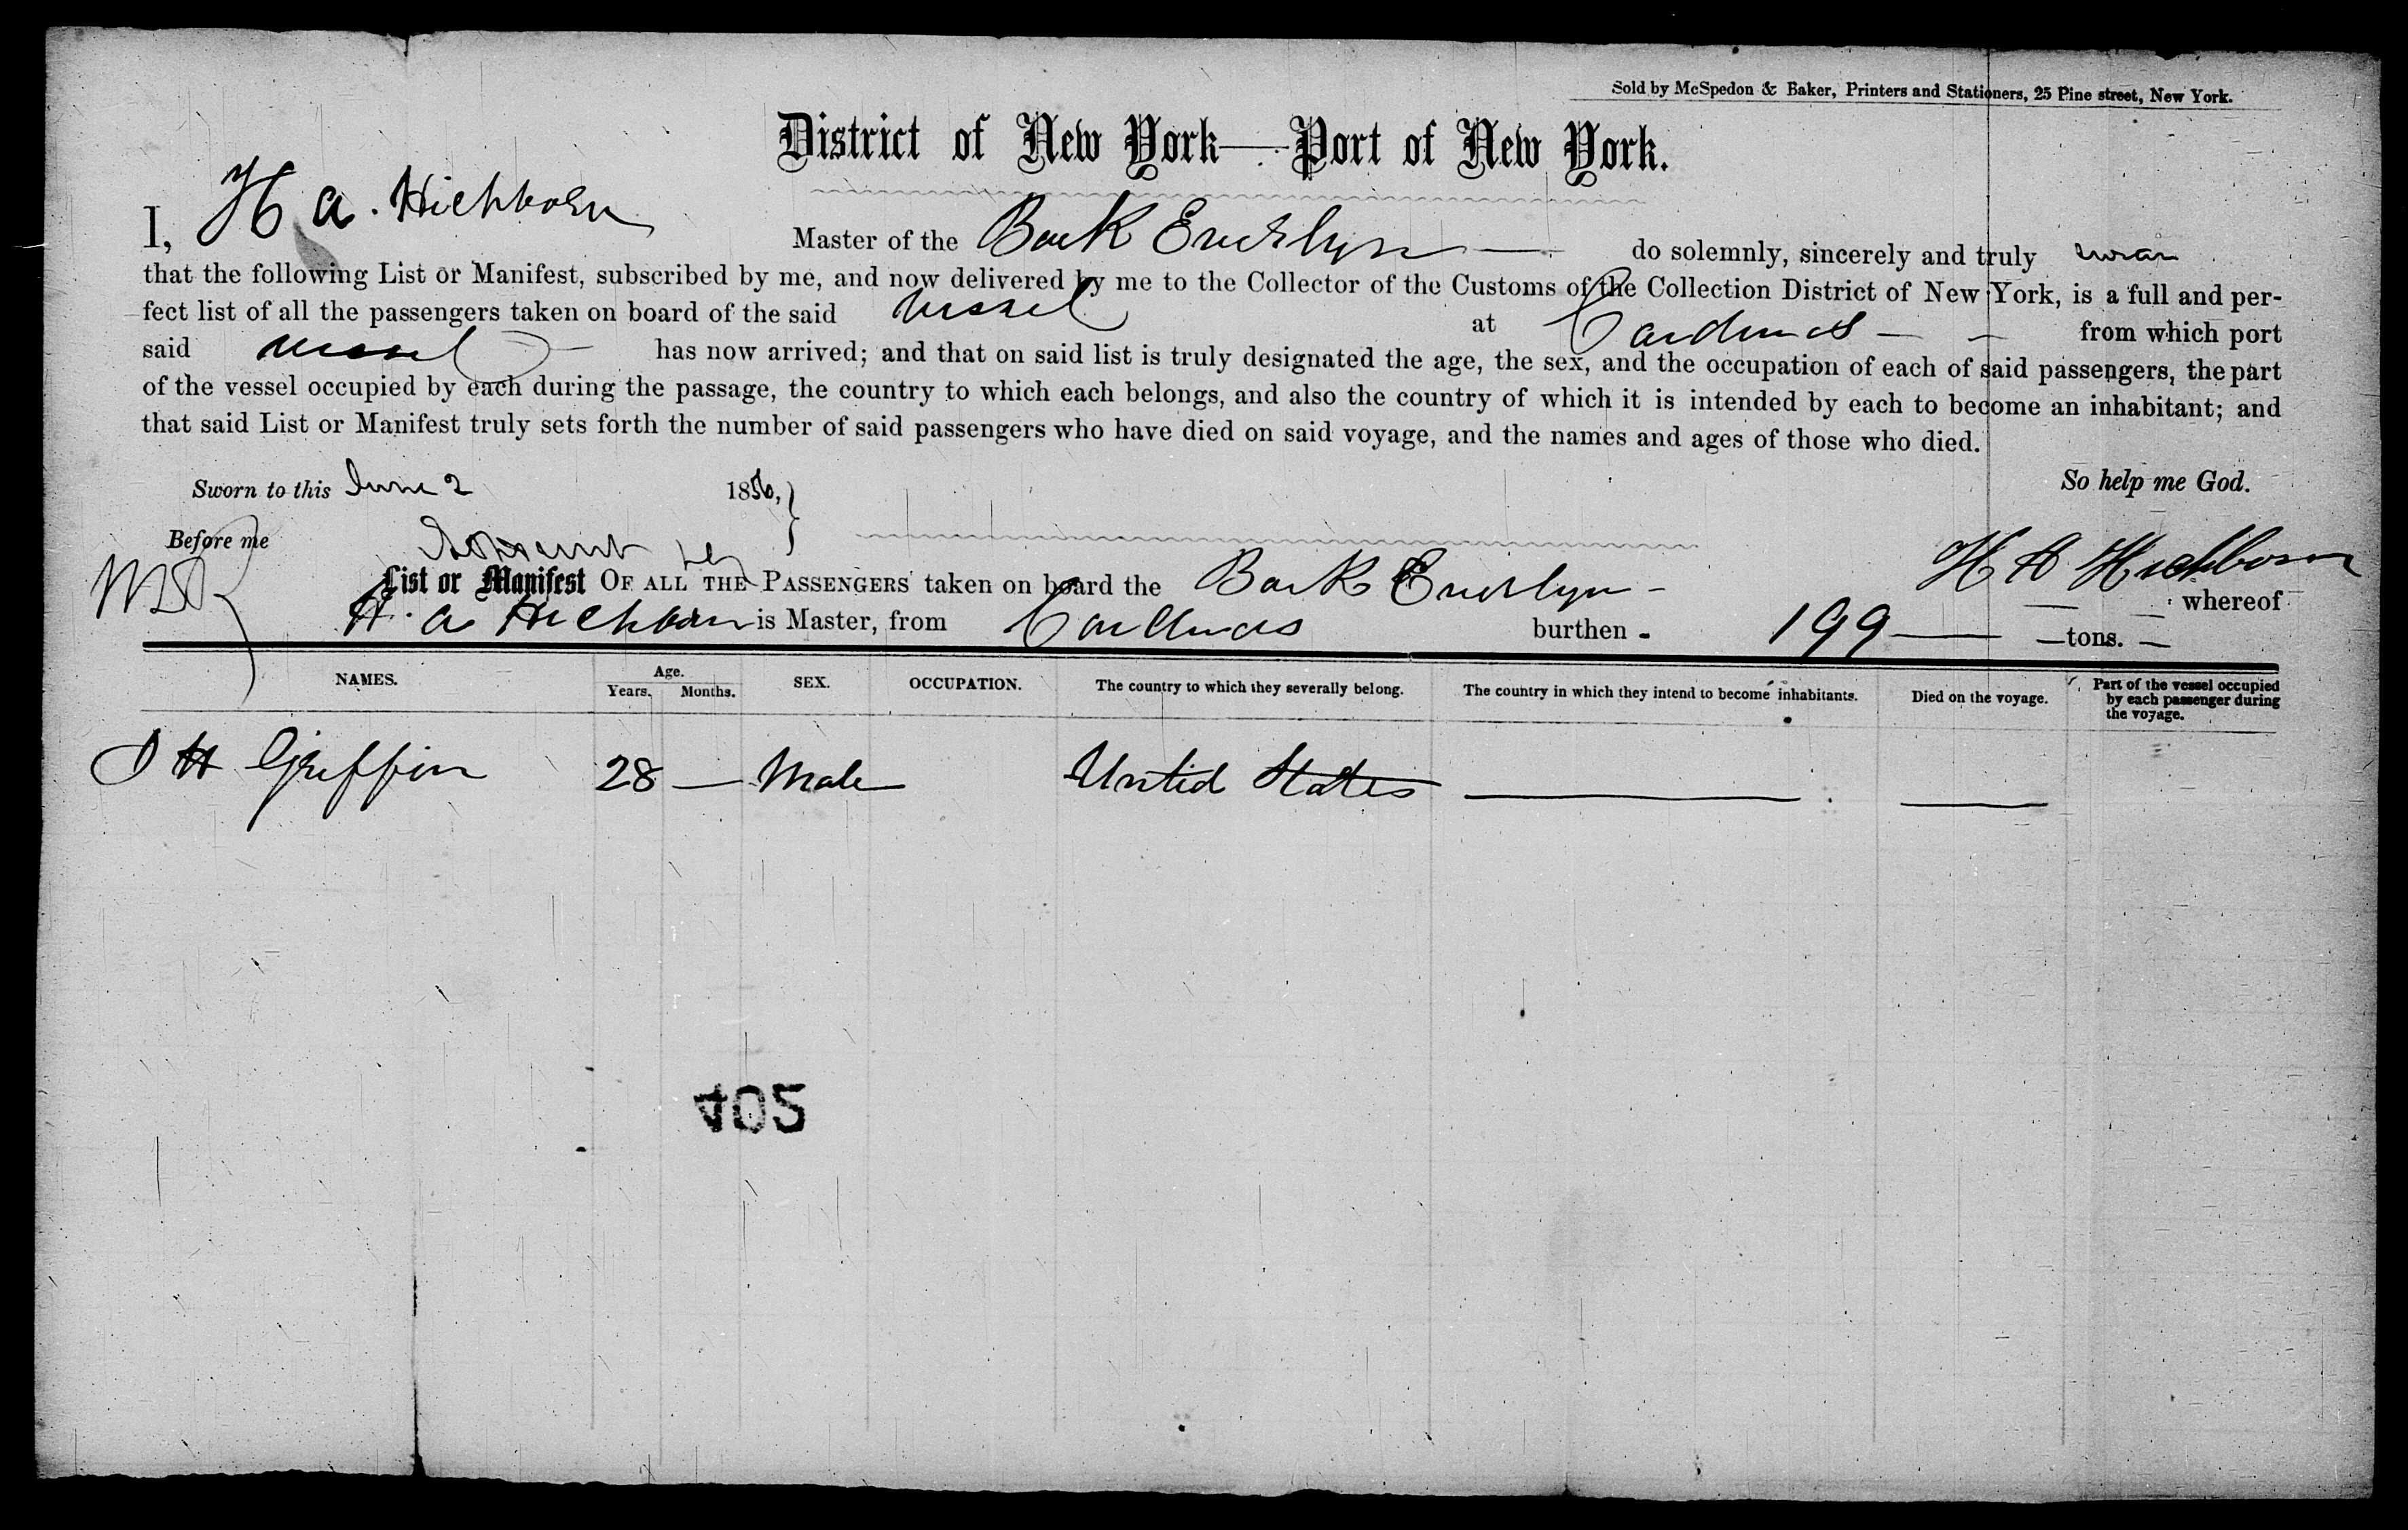 Sold by McSpedon & Baker, Printers and Stationers, 25 Pine street, New York.
District of New York—Port of New York.
I, H A. Hichborn Master of the Bark do solemnly, sincerely and truly swear
that the following List or Manifest, subscribed by me, and now delivered by me to the Collector of the Customs of the Collection District of New York, is a full and per-
fect list of all the passengers taken on board of the said vessel at Cardenas from which port
said vessel has now arrived; and that on said list is truly designated the age, the sex, and the occupation of each of said passengers, the part
of the vessel occupied by each during the passage, the country to which each belongs, and also the country of which it is intended by each to become an inhabitant; and
that said List or Manifest truly sets forth the number of said passengers who have died on said voyage, and the names and ages of those who died.
Sworn to this June 2 1856, So help me God.
Before me
H A Hichborn
List or Manifest OF ALL THE PASSENGERS taken on board the Bark whereof
H. A Hichborn is Master, from Cardenas burthen 199 tons.
NAMES. Age. Years. Months. SEX. OCCUPATION. The country to which they severally belong. The country in which they intend to become inhabitants. Died on the voyage. Part of the vessel occupied by each passenger during the voyage.
J H Griffin 28 — Male United States — —
405